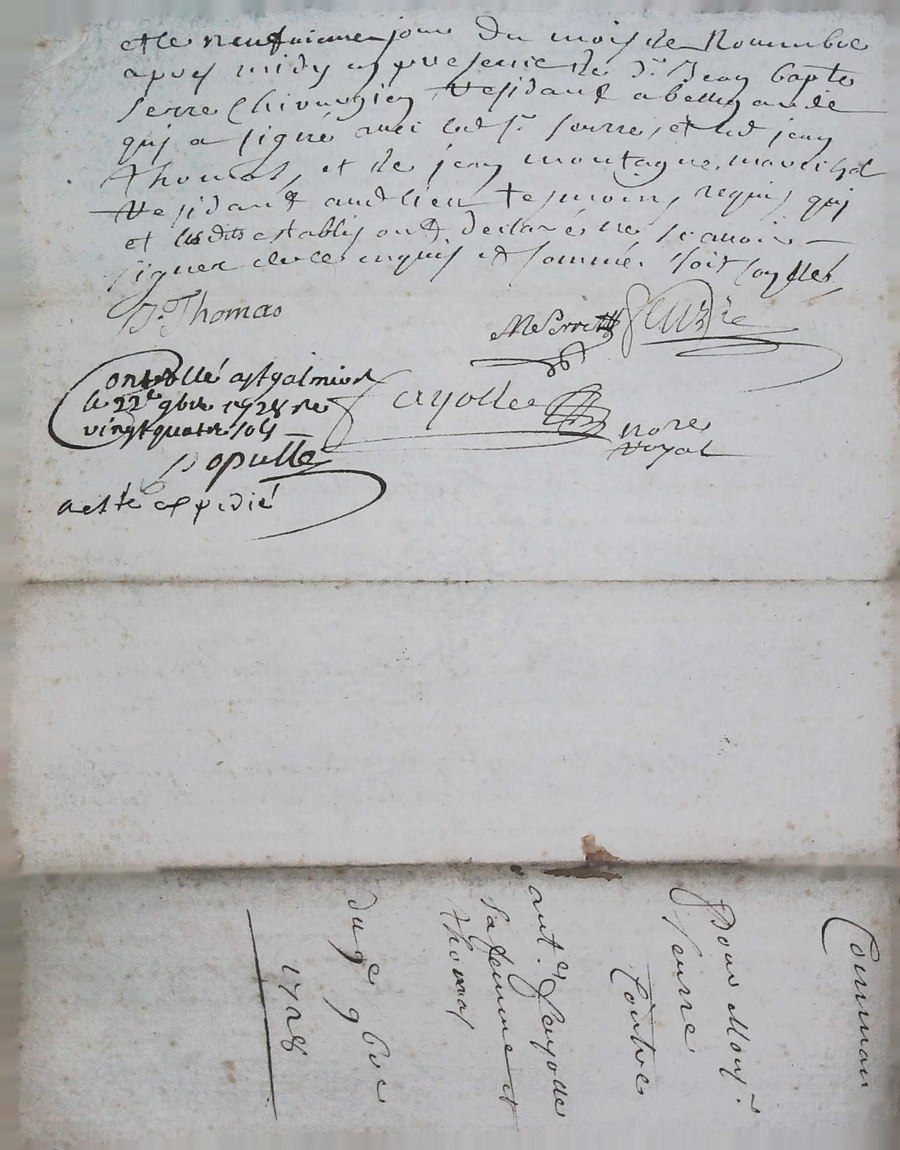 et le neufvieme jour du mois de Novembre
apres midy en presence de Sr. Jean bapte
Serre Chirurgien Residant a bellegarde
qui a signé avec led. Sr. serre, et led. jean
Thomas, et de jean montagne marechal
Residant aud. lieu tesmoins requis qui
et lesdits establis ont declaré ne scavoir
signer de ce enquis et sommé. soit
J. Thomas
Serre
Controllé a st galmier
le 22e 9bre 1728 Re
vingt quatre sols
fayolle
nore
Royal
a esté expedié
Pour Monsr.
Serre
Contre
ant. fayolle
sa femme et
thomas
du 9e 9bre
1728